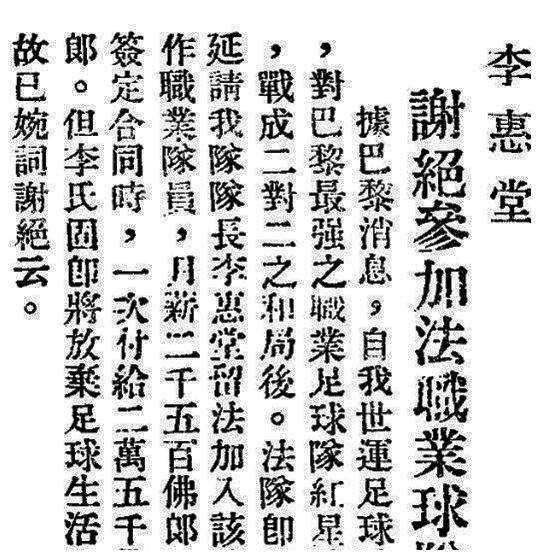 李惠堂
謝絕參加法職業球隊
據巴黎消息，自我世運足球
，對巴黎最强之職業足球隊紅星
，戰成二對二之和局後。法隊卽
延請我隊隊長李惠堂留法加入該
作職業隊員，月薪二千五百佛郎
簽定合同時，一次付給二萬五千
郎。但李氏因卽將放棄足球生活
故已婉詞謝絕云。